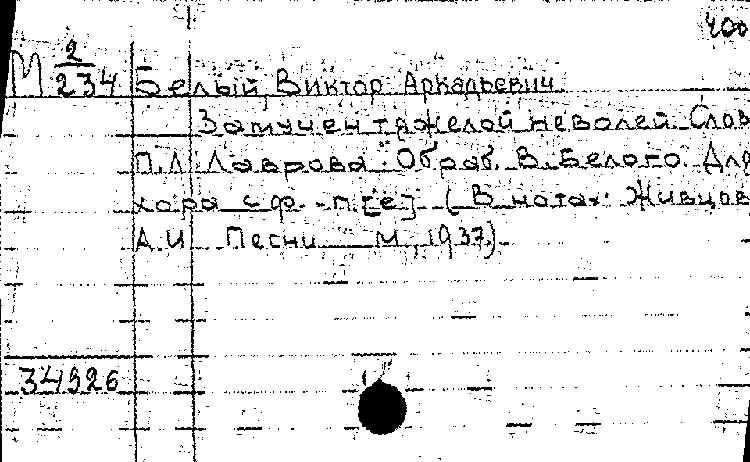 400
М 2/234 Белый, Виктор Аркадьевич.
Замучен тяжелой неволей. Слов
П.Л. Лаврова. Обраб. В. Белого. Для
хора с ф.-п. [e] (В нотах: Живцов
А.И. Песни М., 1937).
34926